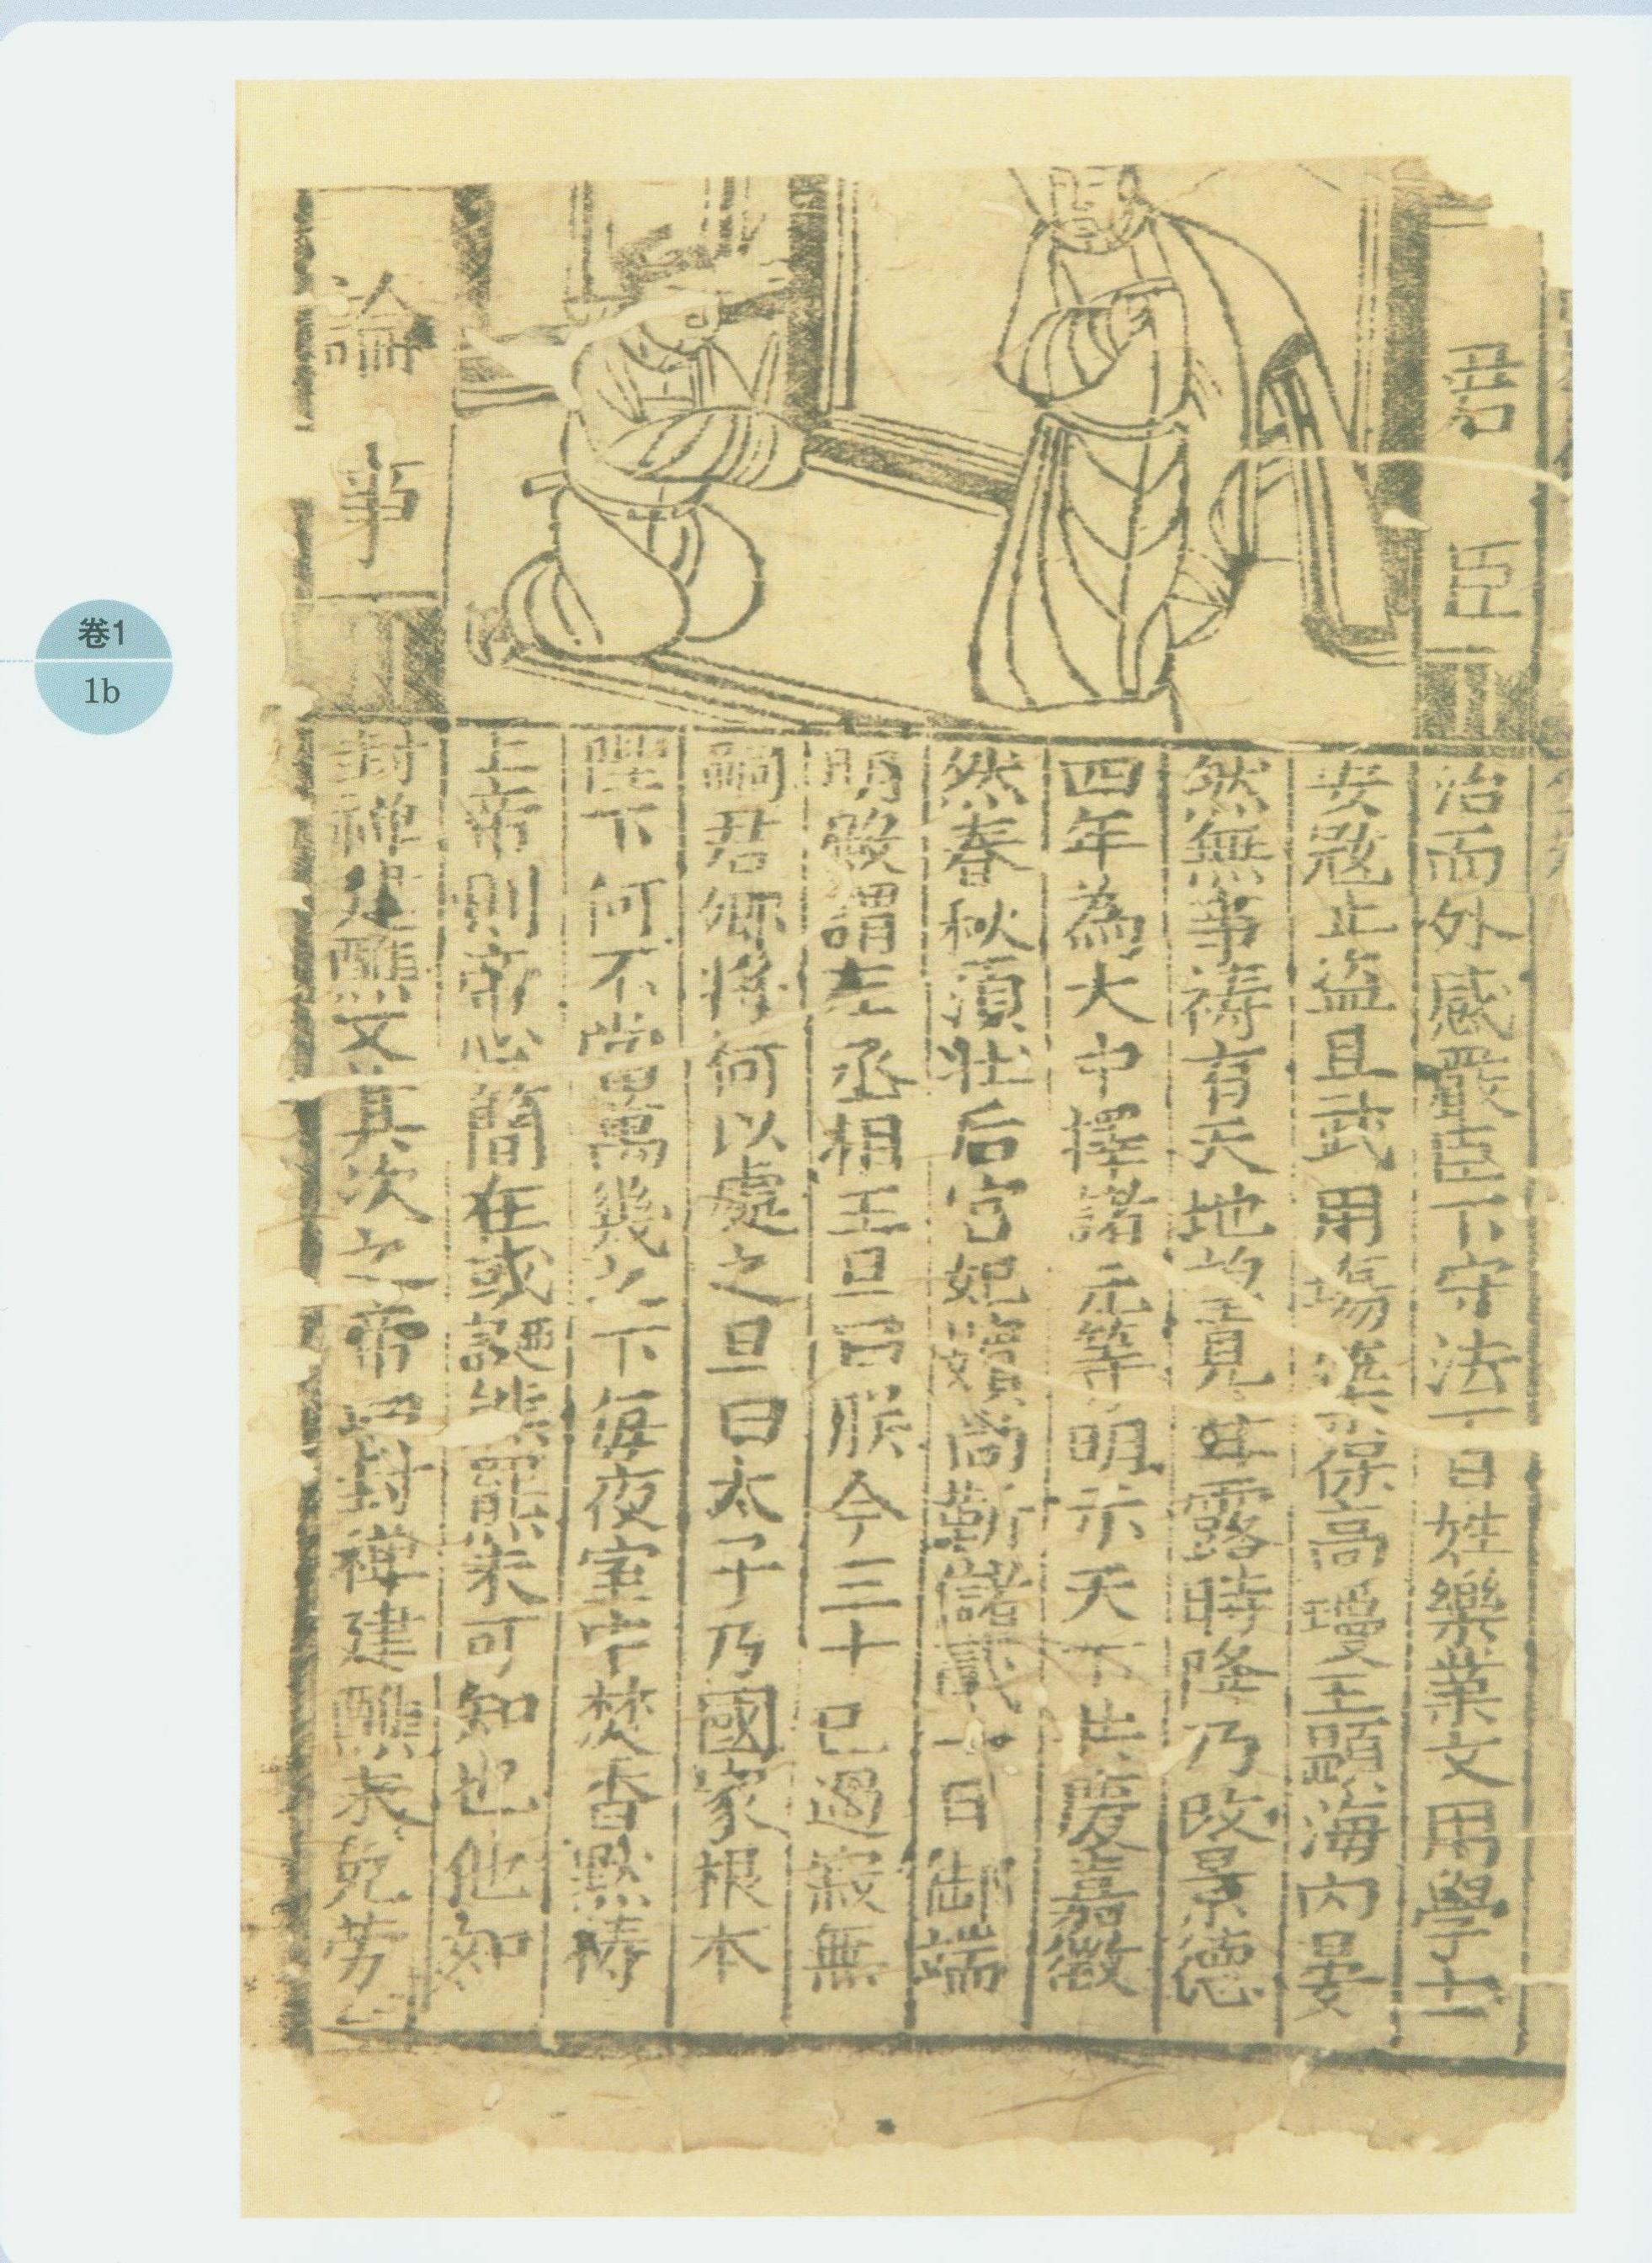 君臣
論事
治而外感嚴臣下守法百姓樂業文用學士
安宼止盜且武用保高瓊王顯海内晏
然無事禱有天地望見甘露時降乃改景德
四年為大中擇諸元等明示天下生慶嘉徵
然春秋須壮后宫妃嬪尚靳儲貳一日御端
明殿謂左丞相王旦曰朕今三十已過寂無
嗣君卿將何以處之旦曰太子乃國家根本
陛下何不當萬幾之下每夜室中焚香黙禱
上帝則帝心簡在或誕熊羆未可知也他如
封禅建醮又其次之帝封禅建醮求児劳
卷1
1b